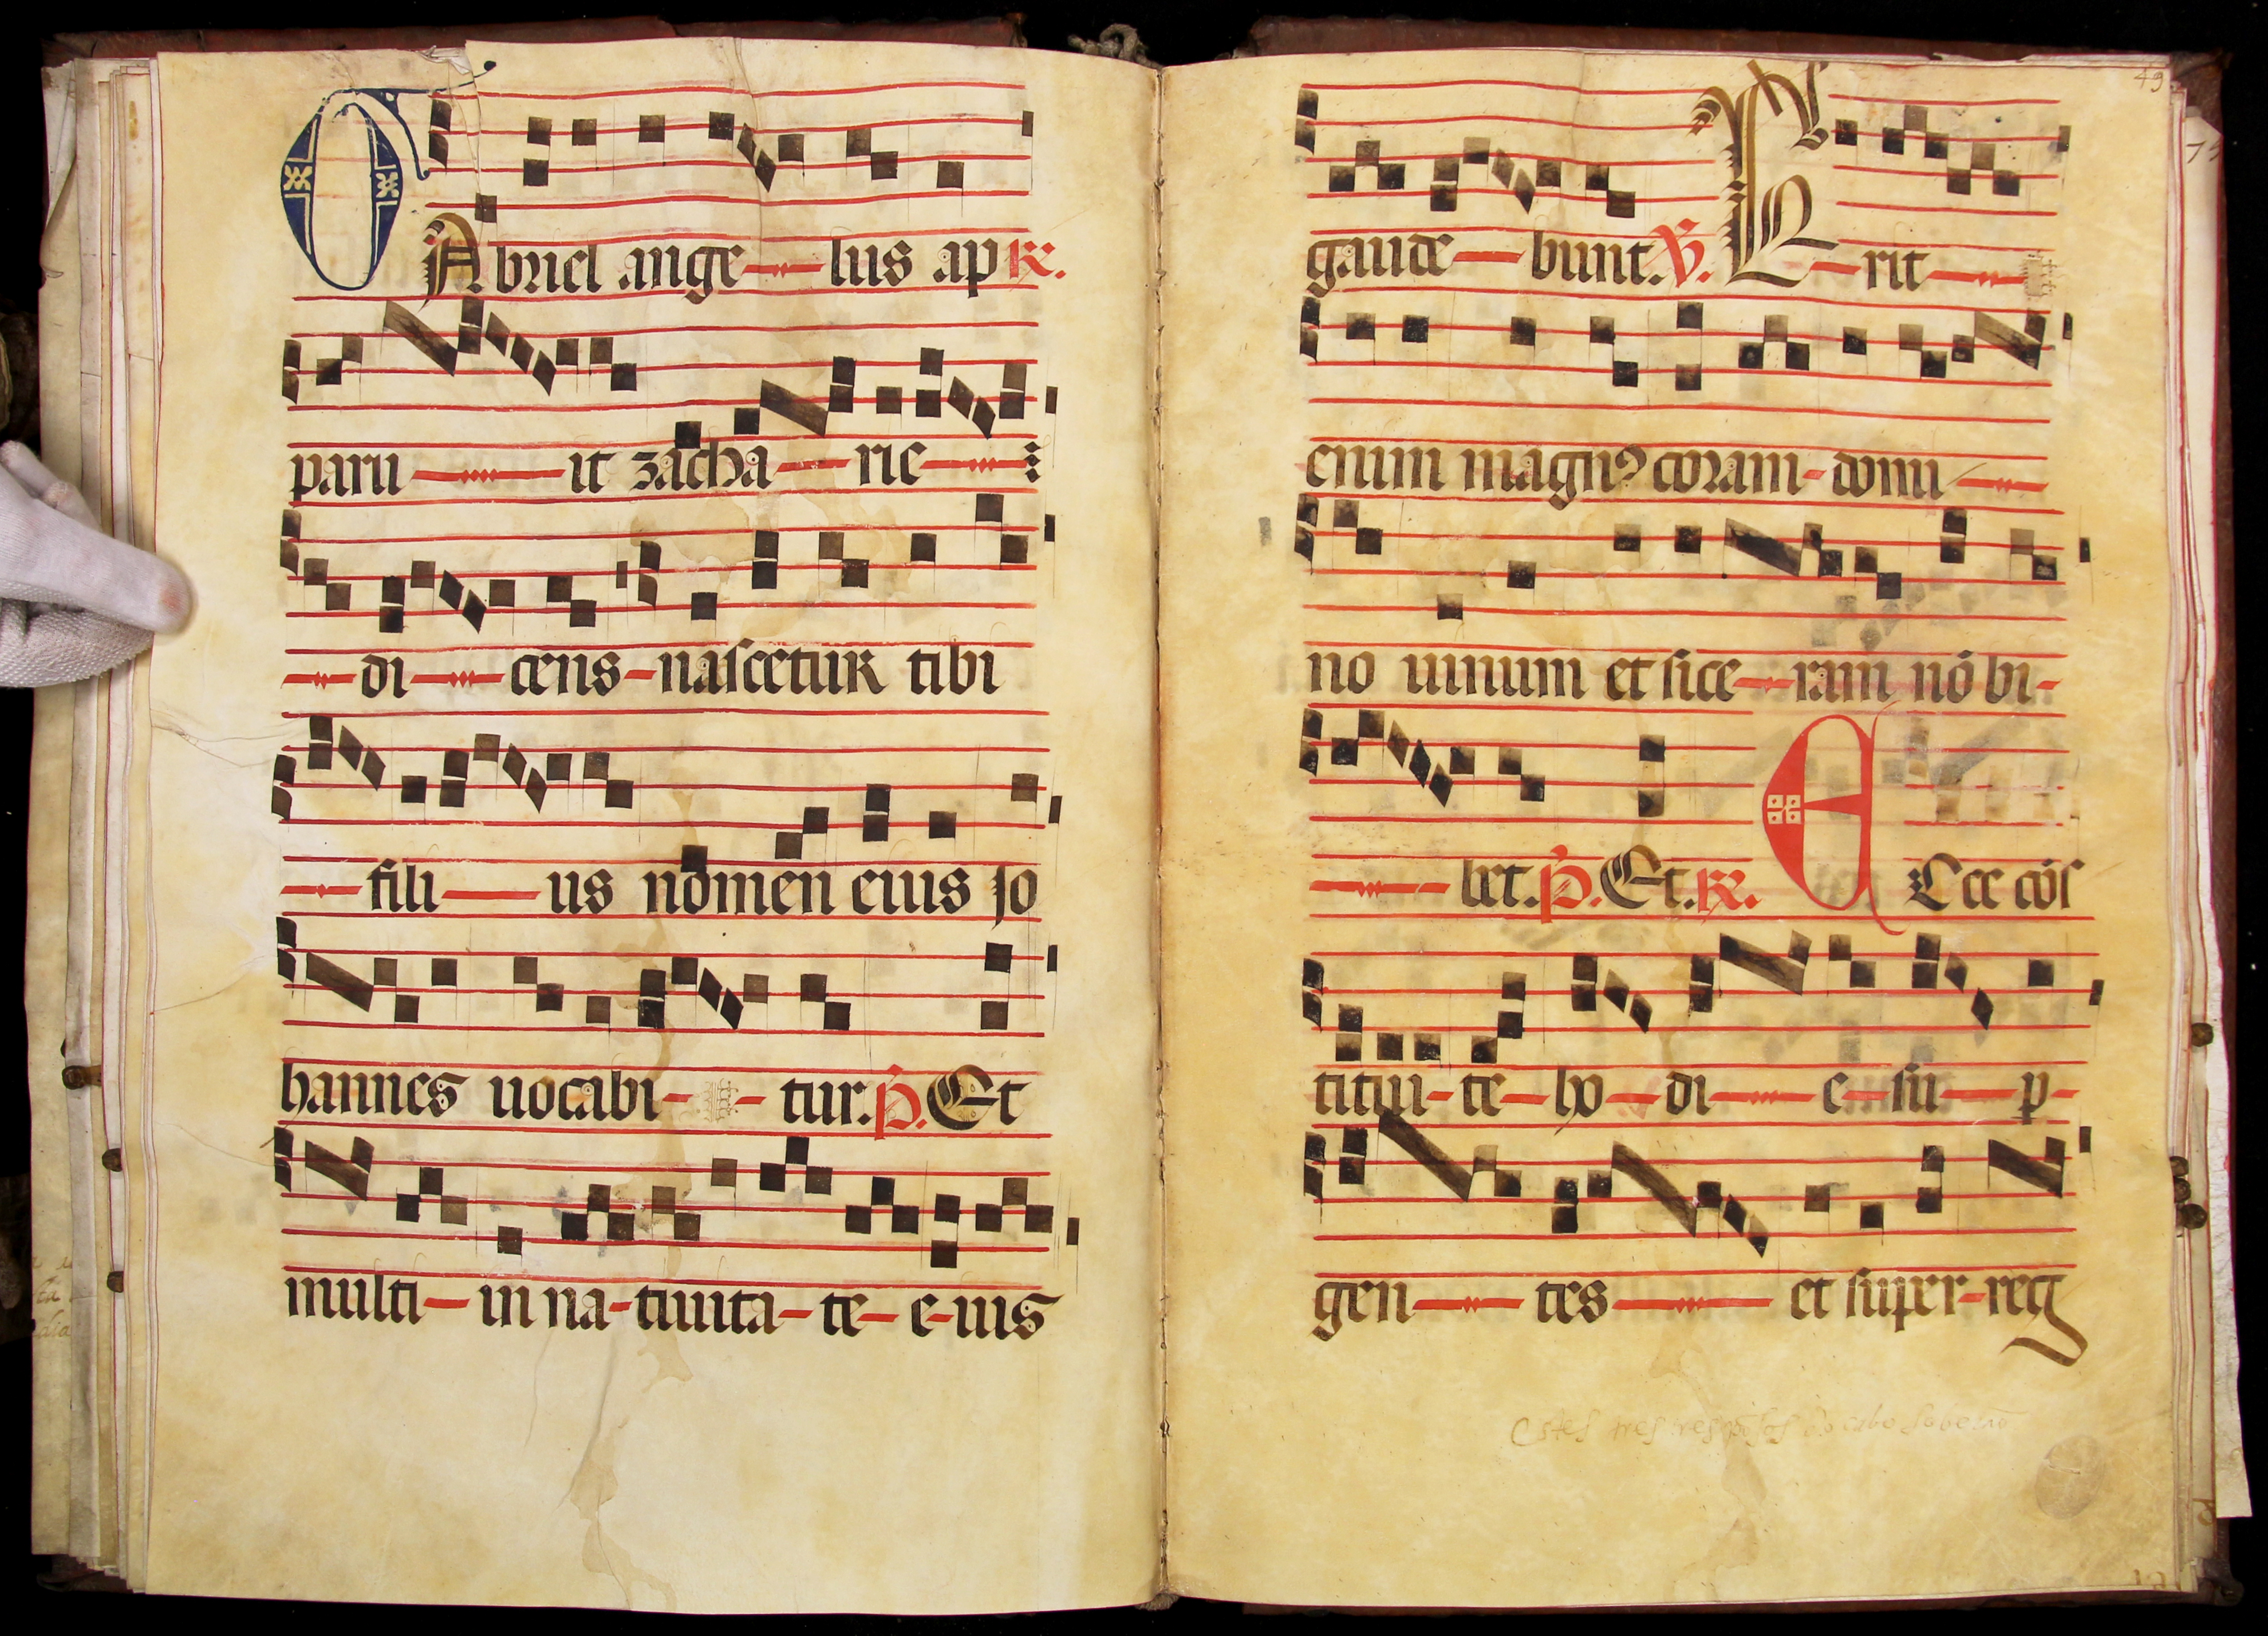 GAbriel ange lus ap R.
paru it zacha rie
di cens nascetur tibi
fili us nomen eius Jo
hannes uocabi tur. P. Et
multi in na tiuita te e ius
gaude bunt. V. E rit
enim magnꝰ coram domi
no uinum et sice ram nō bi
bet. P. Et. R. ECce cōs
titui te ho di e su p
gen tes et super reg
Estes tres
49